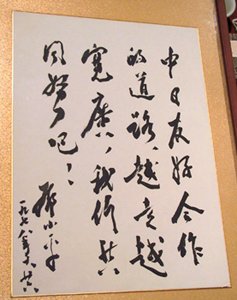 中日友好合作
的道路,越走越
寬廣,我们共
同努力吧!
邓小平
一九七八年十